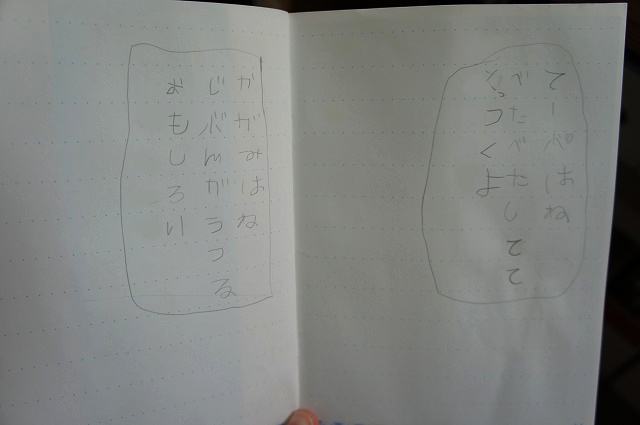 てーぷはね
べたべたしてて
くっつくよ
かがみはね
じぶんがうつる
おもしろい